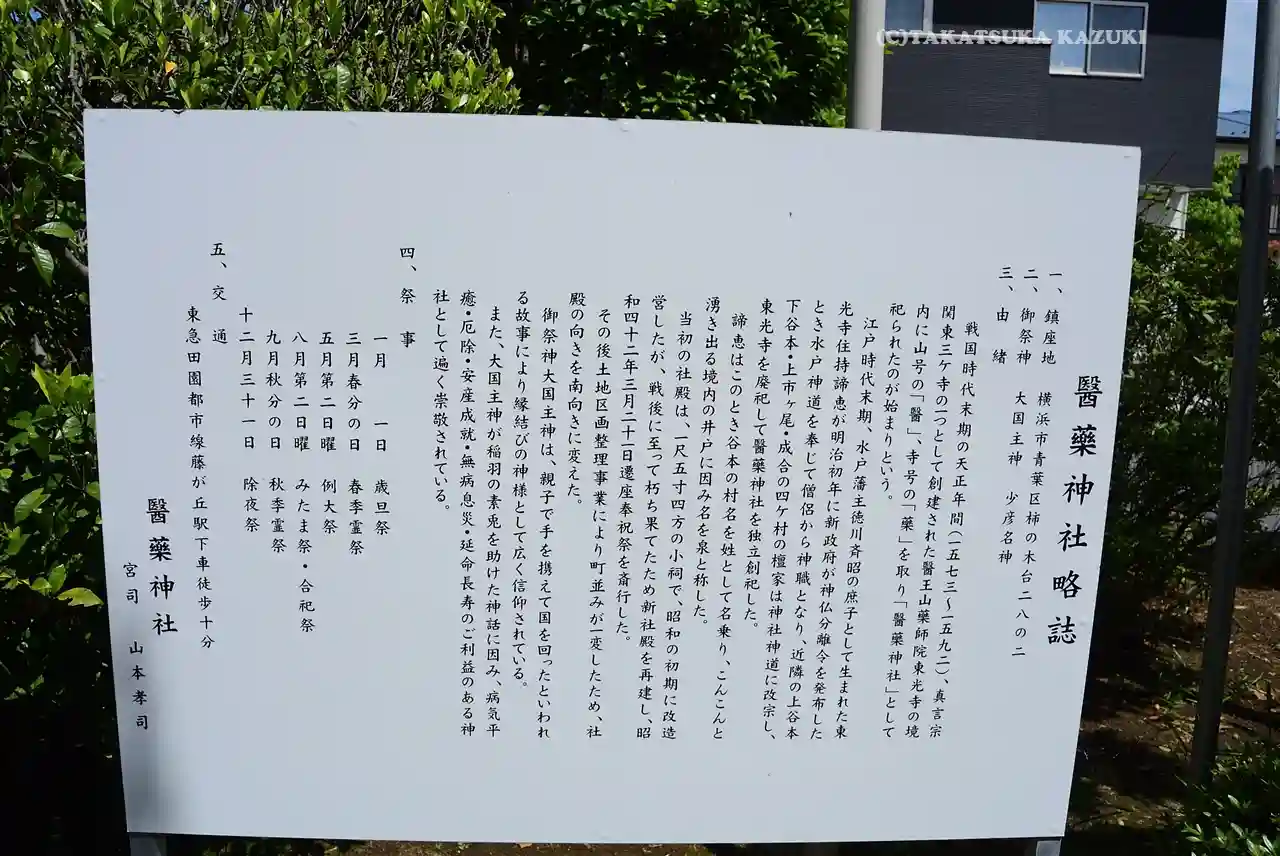 (C)TAKATSUKA KAZUKI
醫藥神社略誌
一、鎮座地 横浜市青葉区柿の木台二八の二
二、御祭神 大国主神 少彦名神
三、由緒
戦国時代末期の天正年間(一五七三~一五九二)、真言宗
関東三ケ寺の一つとして創建された醫王山藥師院東光寺の境
内に山号の「醫」、寺号の「藥」を取り「醫藥神社」として
祀られたのが始まりという。
江戸時代末期、水戸藩主徳川斉昭の庶子として生まれた東
光寺住持諦恵が明治初年に新政府が神仏分離令を発布した
とき水戸神道を奉じて僧侶から神職となり、近隣の上谷本
下谷本・上市ヶ尾・成合の四ケ村の檀家は神社神道に改宗し、
東光寺を廃祀して醫藥神社を独立創祀した。
諦恵はこのとき谷本の村名を姓として名乗り、こんこんと
湧き出る境内の井戸に因み名を泉と称した。
当初の社殿は、一尺五寸四方の小祠で、昭和の初期に改造
営したが、戦後に至って朽ち果てたため新社殿を再建し、昭
和四十二年三月二十一日遷座奉祝祭を斎行した。
その後土地区画整理事業により町並みが一変したため、社
殿の向きを南向きに変えた。
御祭神大国主神は、親子で手を携えて国を回ったといわれ
る故事により縁結びの神様として広く信仰されている。
また、大国主神が稲羽の素兎を助けた神話に因み、病気平
癒・厄除・安産成就・無病息災・延命長寿のご利益のある神
社として遍く崇敬されている。
四、祭事
一月 一日 歳旦祭
三月春分の日 春季霊祭
五月第二日曜 例大祭
八月第二日曜 みたま祭・合祀祭
九月秋分の日 秋季霊祭
十二月三十一日 除夜祭
五、交通
東急田園都市線・藤が丘駅下車徒歩十分
醫藥神社
宮司 山本孝司